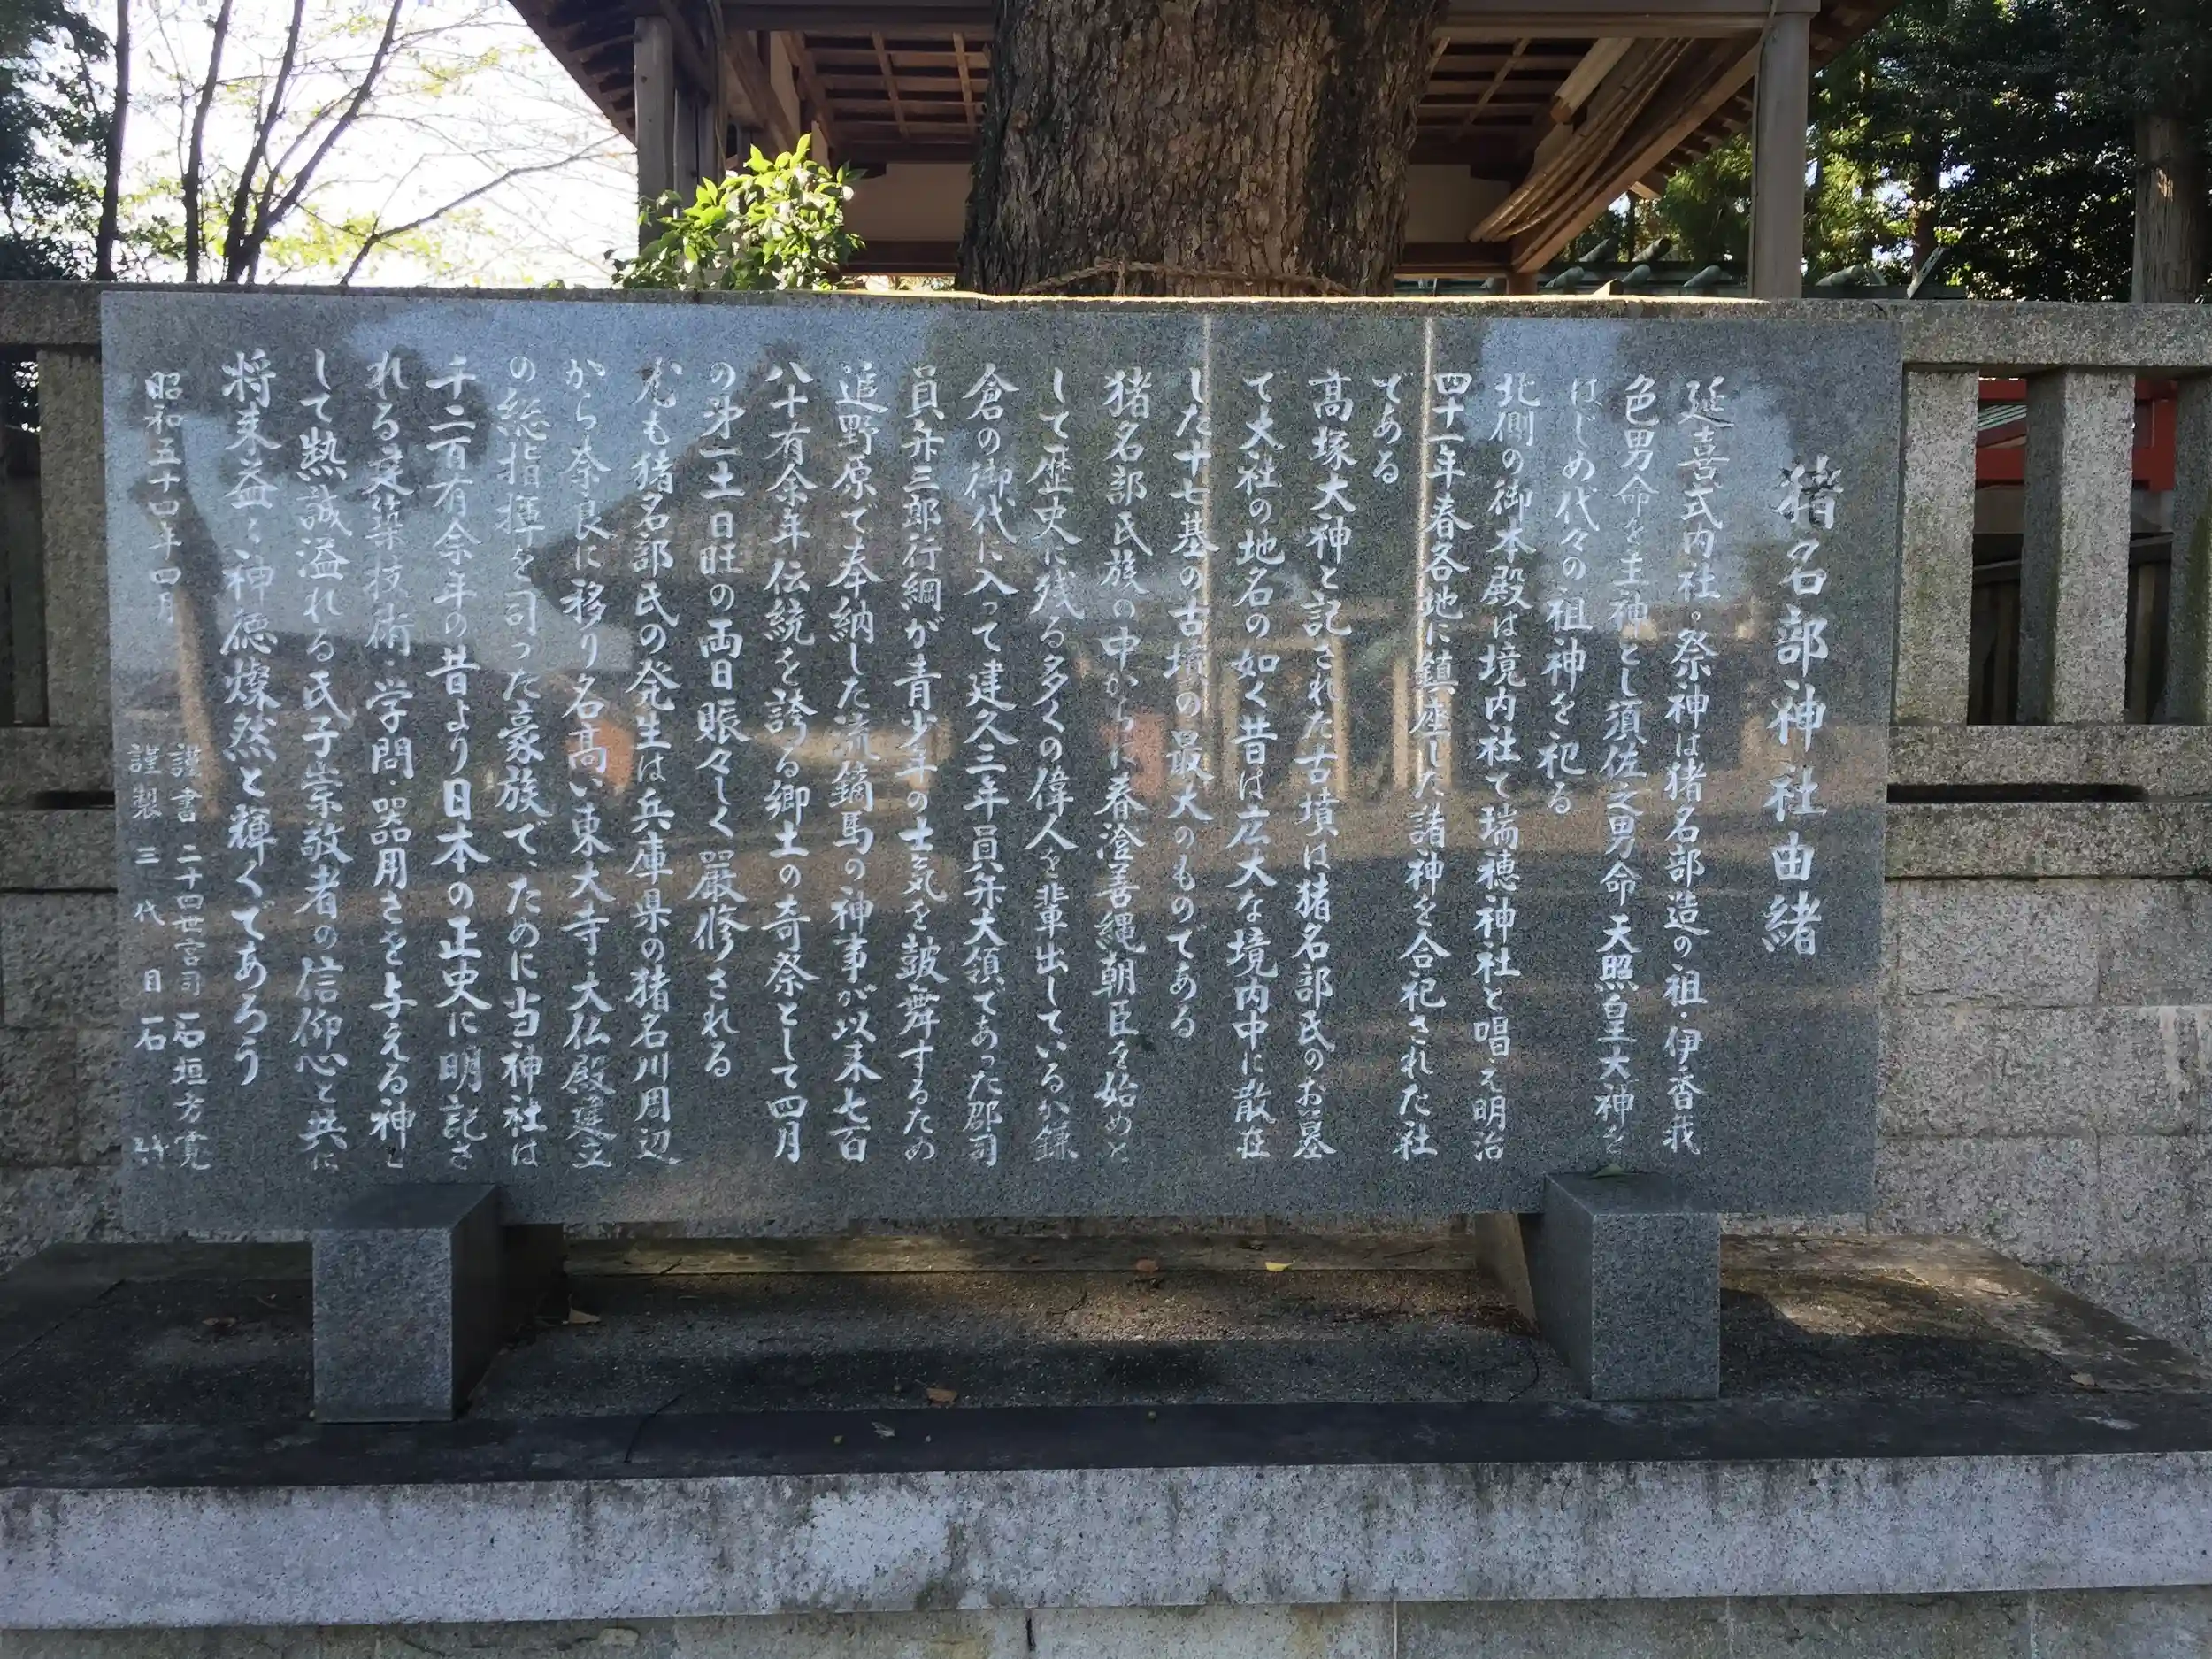 猪名部神社由緒
延喜式内社。祭神は猪名部造の祖・伊香我
色男命を主神とし須佐之男命天照皇大神を
はじめ代々の祖神を祀る
北側の御本殿は境内社で瑞穂神社と唱え明治
四十一年春各地に鎮座した諸神を合祀された社
である
高塚大神と記された古墳は猪名部氏のお墓
で大社の地名の如く昔は広大な境内中に散在
した十七基の古墳の最大のものである
猪名部氏族の中からは春澄善縄朝臣を始めと
して歴史に残る多くの偉人を輩出しているが鎌
倉の御代に入って建久三年員弁大領であった郡司
員弁三郎行綱が青少年の士気を鼓舞するため
追野原で奉納した流鏑馬の神事が以来七百
八十有余年伝統を誇る郷土の奇祭として四月
の第一土日旺の両日賑々しく厳修される
尤も猪名部氏の発生は兵庫県の猪名川周辺
から奈良に移り名高い東大寺大仏殿建立
の総指揮を司った豪族で、ために当神社は
千二百有余年の昔より日本の正史に明記さ
れる建築技術・学問・器用さを与える神と
して熱誠溢れる氏子崇敬者の信仰心と共に
将来益々神徳燦然と輝くであろう
昭和五十四年四月
謹書 二十四世宮司 石垣方寛
謹製 三代目石